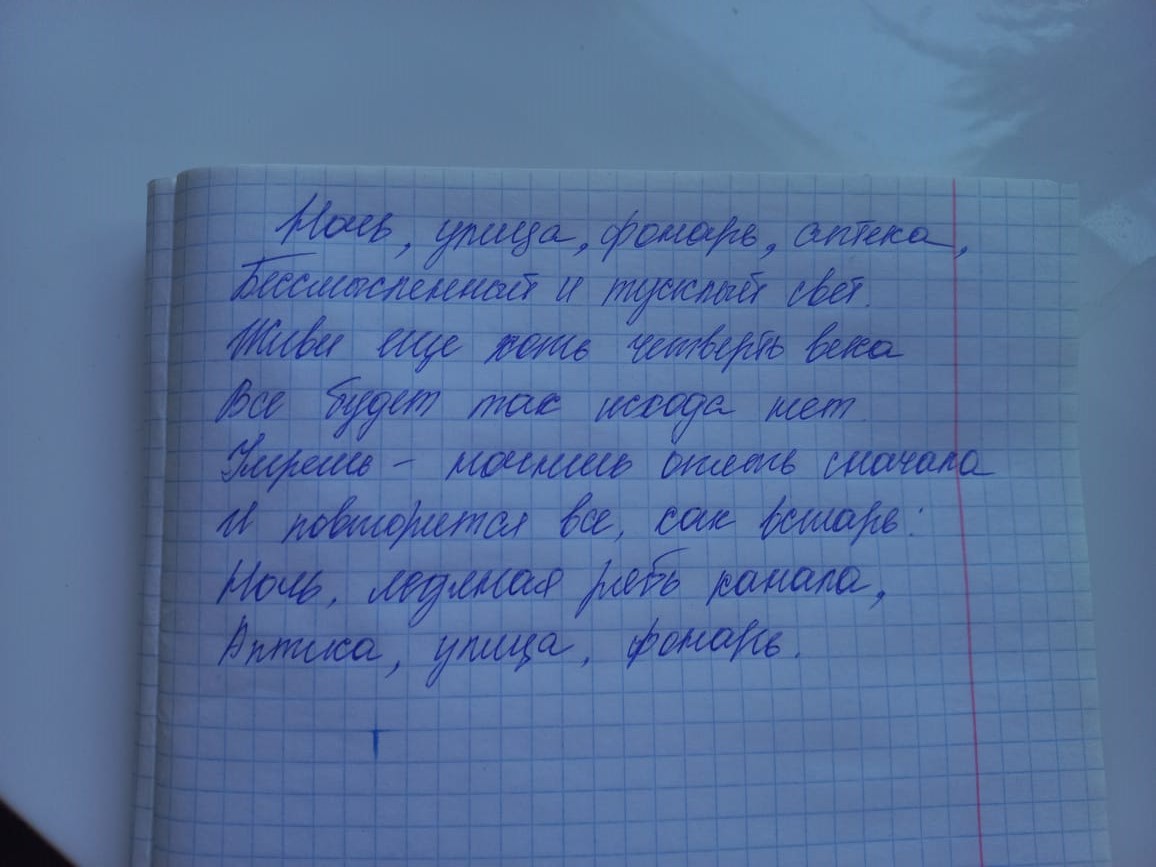 Ночь, улица, фонарь, аптека,
Бессмысленный и тусклый свет.
Живи еще хоть четверть века
Все будет так исхода нет
Умрешь – начнешь опять сначала
И повторится все, как встарь:
Ночь, ледяная рябь канала,
Аптека, улица, фонарь.